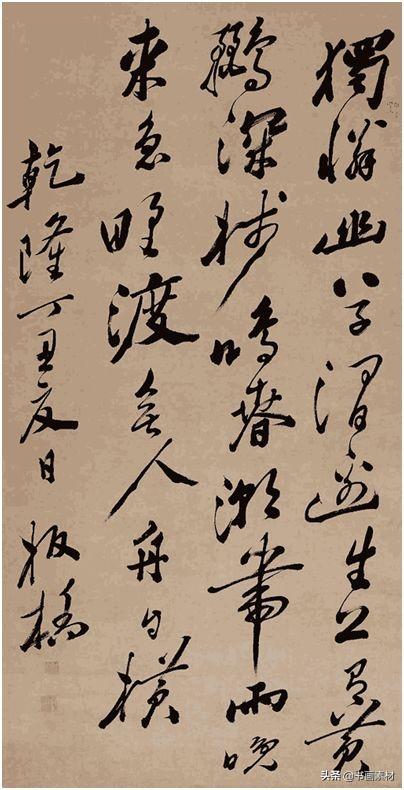 獨憐幽草澗邊生上有黃
鸝深樹鳴春潮帶雨晚
來急野渡無人舟自橫
乾隆丁丑夏日 板橋
头条 @书画素材